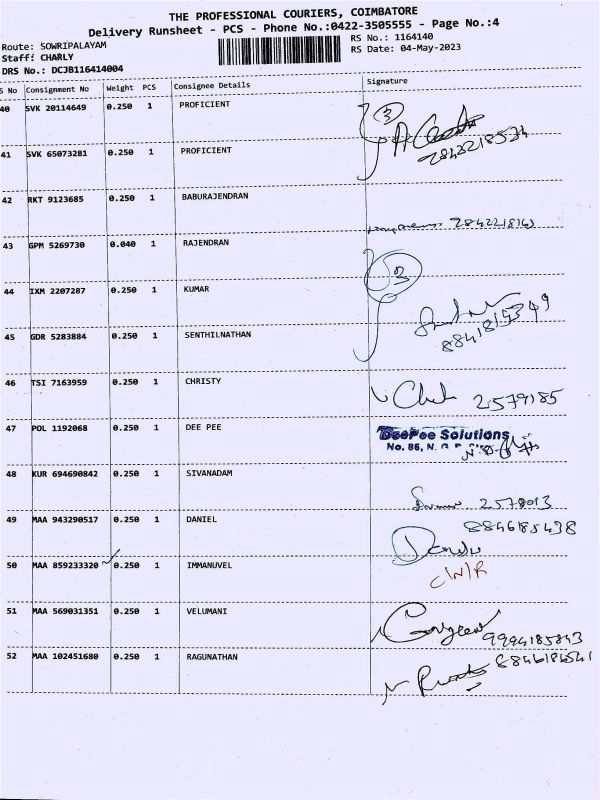 THE PROFESSIONAL COURIERS, COIMBATORE
Delivery Runsheet - PCS - Phone No.:0422-3505555 - Page No.:4
Route: SOWRIPALAYAM
RS No.: 1164140
Staff: CHARLY
RS Date: 04-May-2023
DRS No.: DCJB116414004
S No Consignment No Weight PCS Consignee Details Signature
40 SVK 20114649 0.250 1 PROFICIENT
3
2843218534
41 SVK 65073281 0.250 1 PROFICIENT
42 RKT 9123685 0.250 1 BABURAJENDRAN
43 GPM 5269730 0.040 1 RAJENDRAN
44 IXM 2207287 0.250 1 KUMAR
45 GDR 5283884 0.250 1 SENTHILNATHAN
46 TSI 7163959 0.250 1 CHRISTY
2579185
47 POL 1192068 0.250 1 DEE PEE
DeePee Solutions
No. 86, N.
48 KUR 694690842 0.250 1 SIVANADAM
2578013
49 MAA 943290517 0.250 1 DANIEL
8846185438
50 MAA 859233320 0.250 1 IMMANUVEL
C/N/R
51 MAA 569031351 0.250 1 VELUMANI
9994185843
52 MAA 102451680 0.250 1 RAGUNATHAN
8846186541